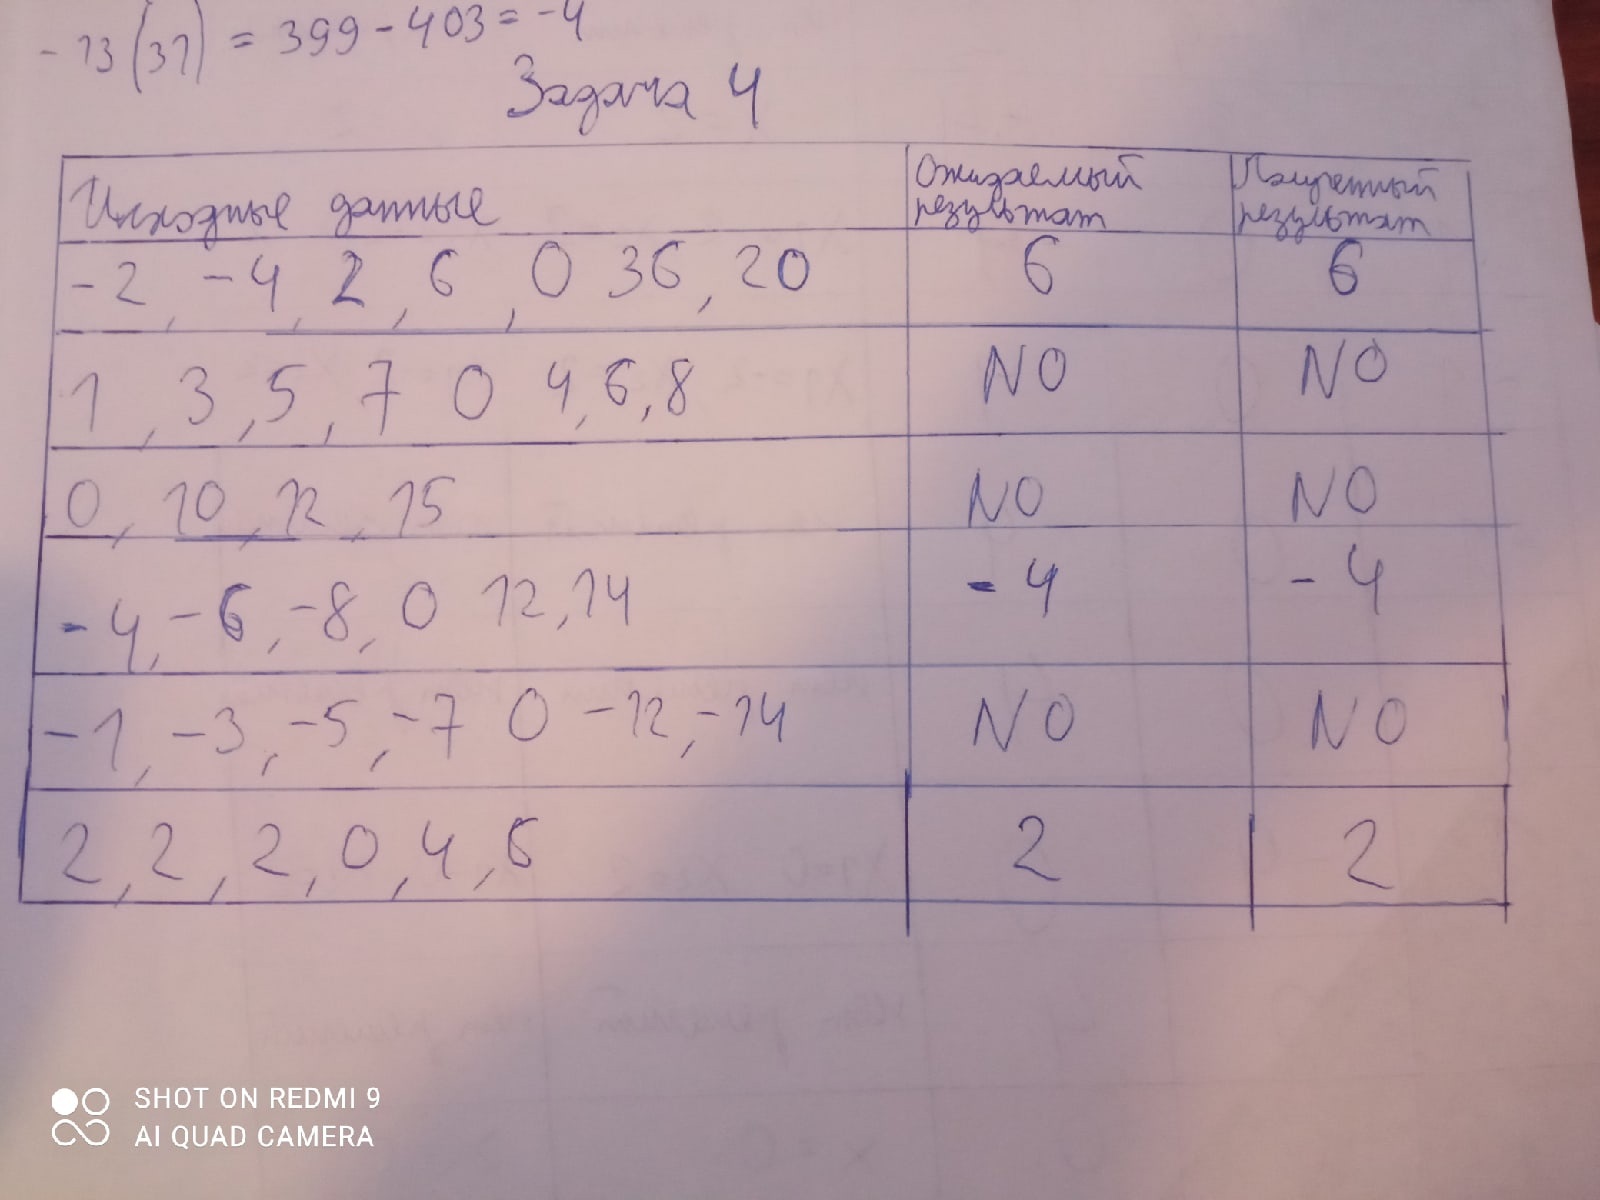 -13(31) = 399-403 = -4
Задача 4
Исходные данные
Ожидаемый результат
Полученный результат
-2, -4, 2, 6, 0 36, 20 6 6
1, 3, 5, 7 0 4, 6, 8 NO NO
0, 10, 12, 15 NO NO
-4, -6, -8, 0 12, 14 -4 -4
-1, -3, -5, -7 0 -12, -14 NO NO
2, 2, 2, 0, 4, 6 2 2
SHOT ON REDMI 9
AI QUAD CAMERA